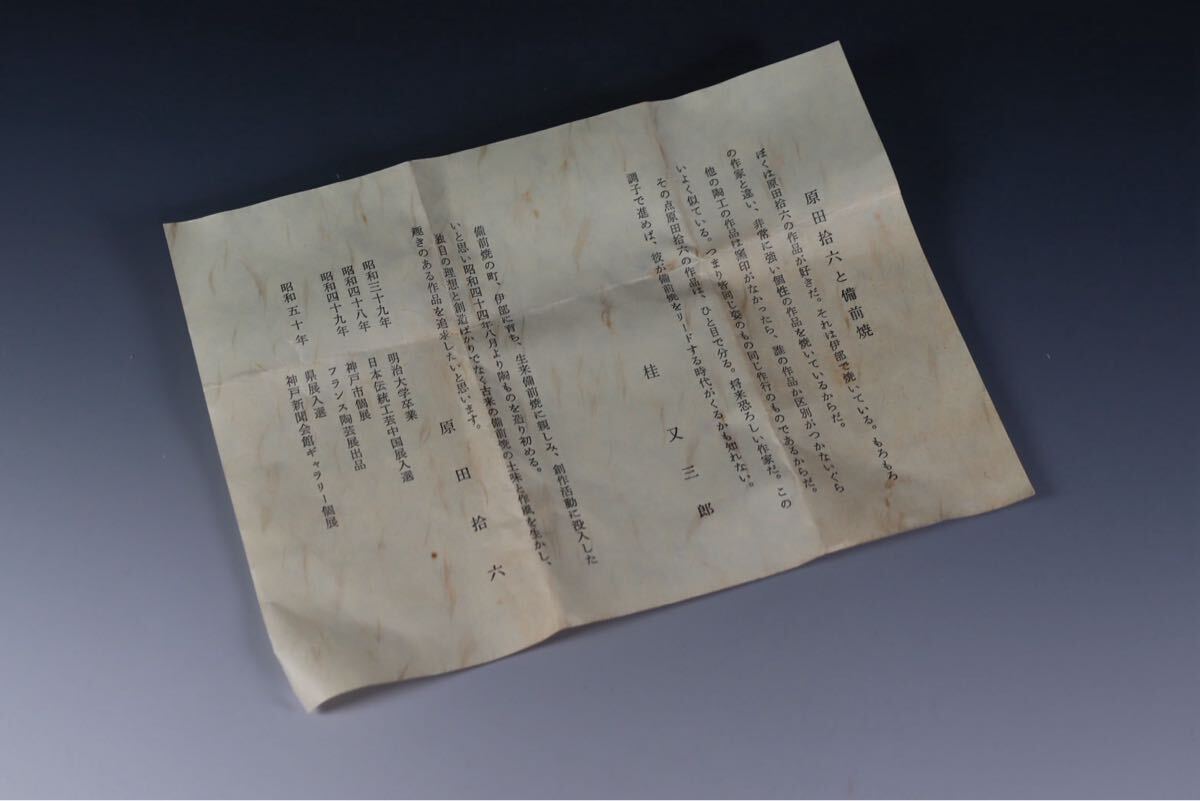 原田拾六と備前焼
ぼくは原田拾六の作品が好きだ。それは伊部で焼いている。もろもろ
の作家と違い、非常に強い個性の作品を焼いているからだ。
他の陶工の作品は窯印がなかったら、誰の作品か区別がつかないぐら
いよく似ている。つまり皆同じ姿のもの同じ作行のものであるからだ。
その点原田拾六の作品は、ひと目で分る。将来恐ろしい作家だ。この
調子で進めば、彼が備前焼をリードする時代がくるかも知れない。
桂又三郎
備前焼の町、伊部に育ち、生来備前焼に親しみ、創作活動に没入した
いと思い昭和四十四年八月より陶ものを造り初める。
独自の理想と創造ばかりでなく古来の備前焼の土味と作風を生かし、
趣きのある作品を追求したいと思います。
原田拾六
昭和三十九年 明治大学卒業
昭和四十八年 日本伝統工芸中国展入選
神戸市個展
昭和四十九年 フランス陶芸展出品
県展入選
昭和五十年 神戸新聞会館ギャラリー個展